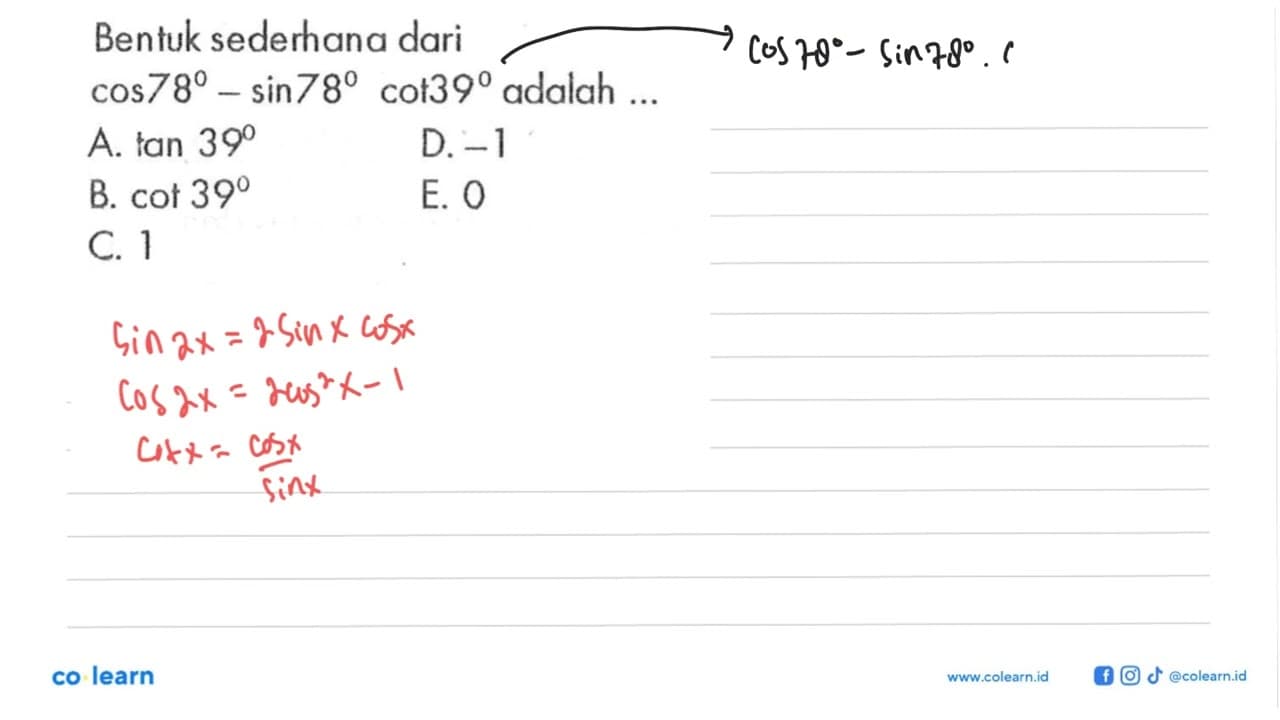 Bentuk sederhana dari
cos78⁰ – sin78⁰ cot39⁰ adalah ...
A. tan 39⁰
B. cot 39⁰
C. 1
D. –1
E. 0
cos78° – sin78° . c
sin 2x = 2 sin x cosx
cos 2x = 2cos²x – 1
cotx = cosx
sinx
co learn
www.colearn.id
@colearn.id